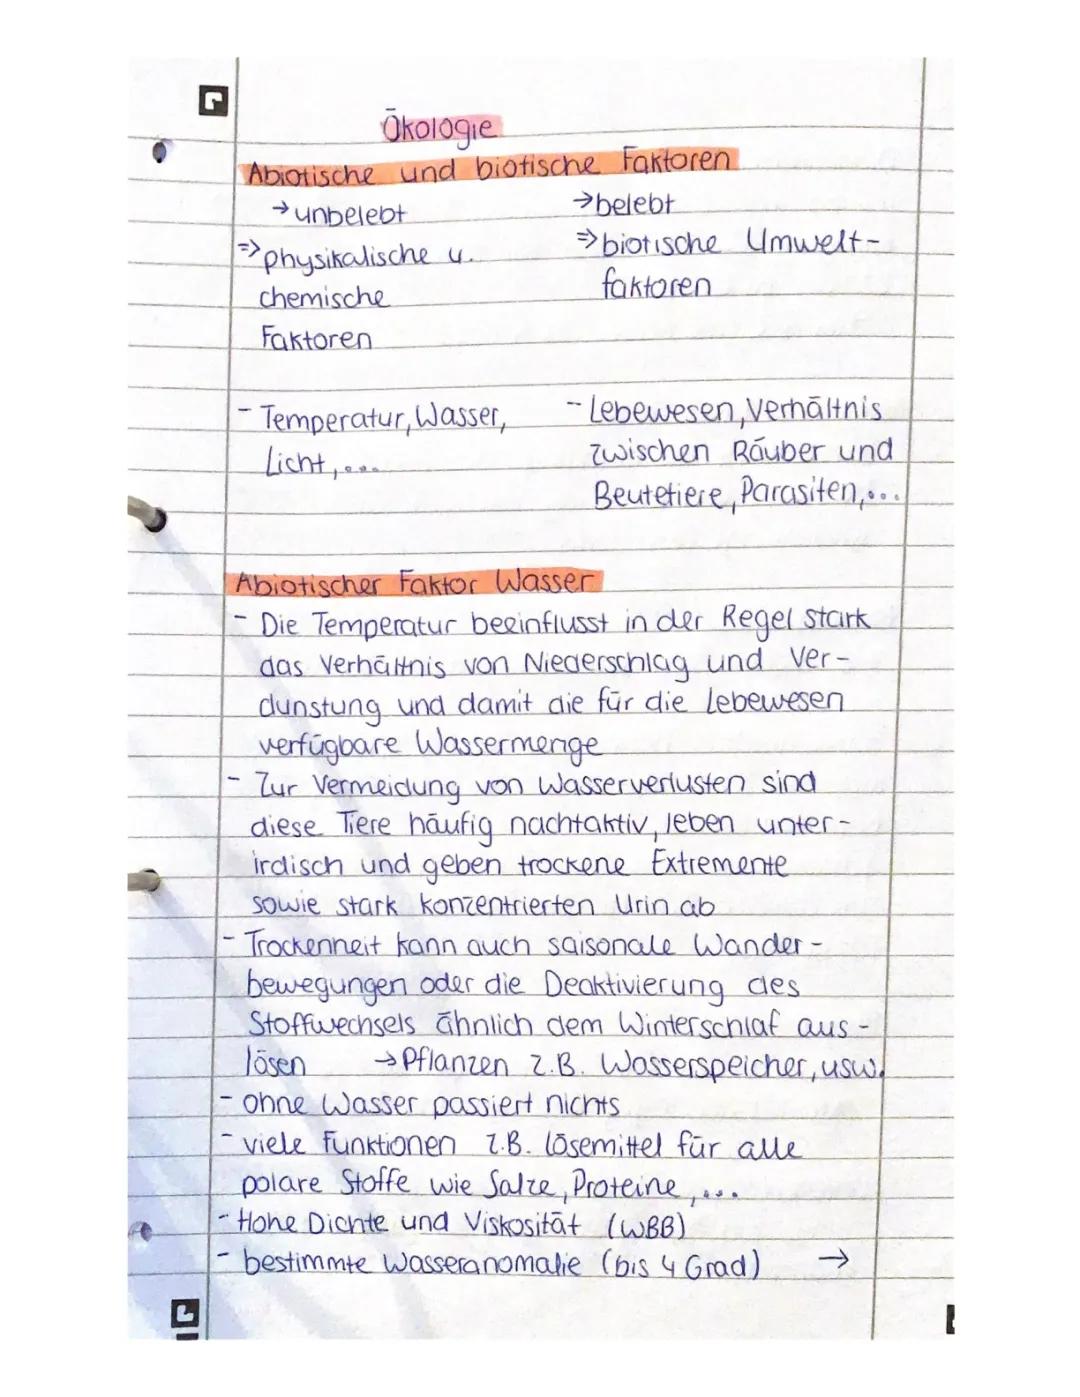 Ökologie
Abiotische und biotische Faktoren
→ unbelebt →belebt
⇒physikalische u. ⇒biotische Umwelt-
chemische faktoren
Faktoren
- Temperatur, Wasser, - Lebewesen, Verhältnis
Licht,... zwischen Räuber und
Beutetiere, Parasiten,...
Abiotischer Faktor Wasser
- Die Temperatur beeinflusst in der Regel stark
das Verhältnis von Niederschlag und Ver-
dunstung und damit die für die Lebewesen
verfügbare Wassermenge
- Zur Vermeidung von Wasserverlusten sind
diese Tiere häufig nachtaktiv, leben unter-
irdisch und geben trockene Extremente
sowie stark konzentrierten Urin ab
- Trockenheit kann auch saisonale Wander-
bewegungen oder die Deaktivierung des
Stoffwechsels ähnlich dem Winterschlaf aus-
lösen →Pflanzen z.B. Wasserspeicher, usw.
- ohne Wasser passiert nichts
- viele Funktionen z.B. Lösemittel für alle
polare Stoffe wie Salze, Proteine,...
- Hohe Dichte und Viskosität (WBB)
- bestimmte Wasseranomalie (bis 4 Grad) →